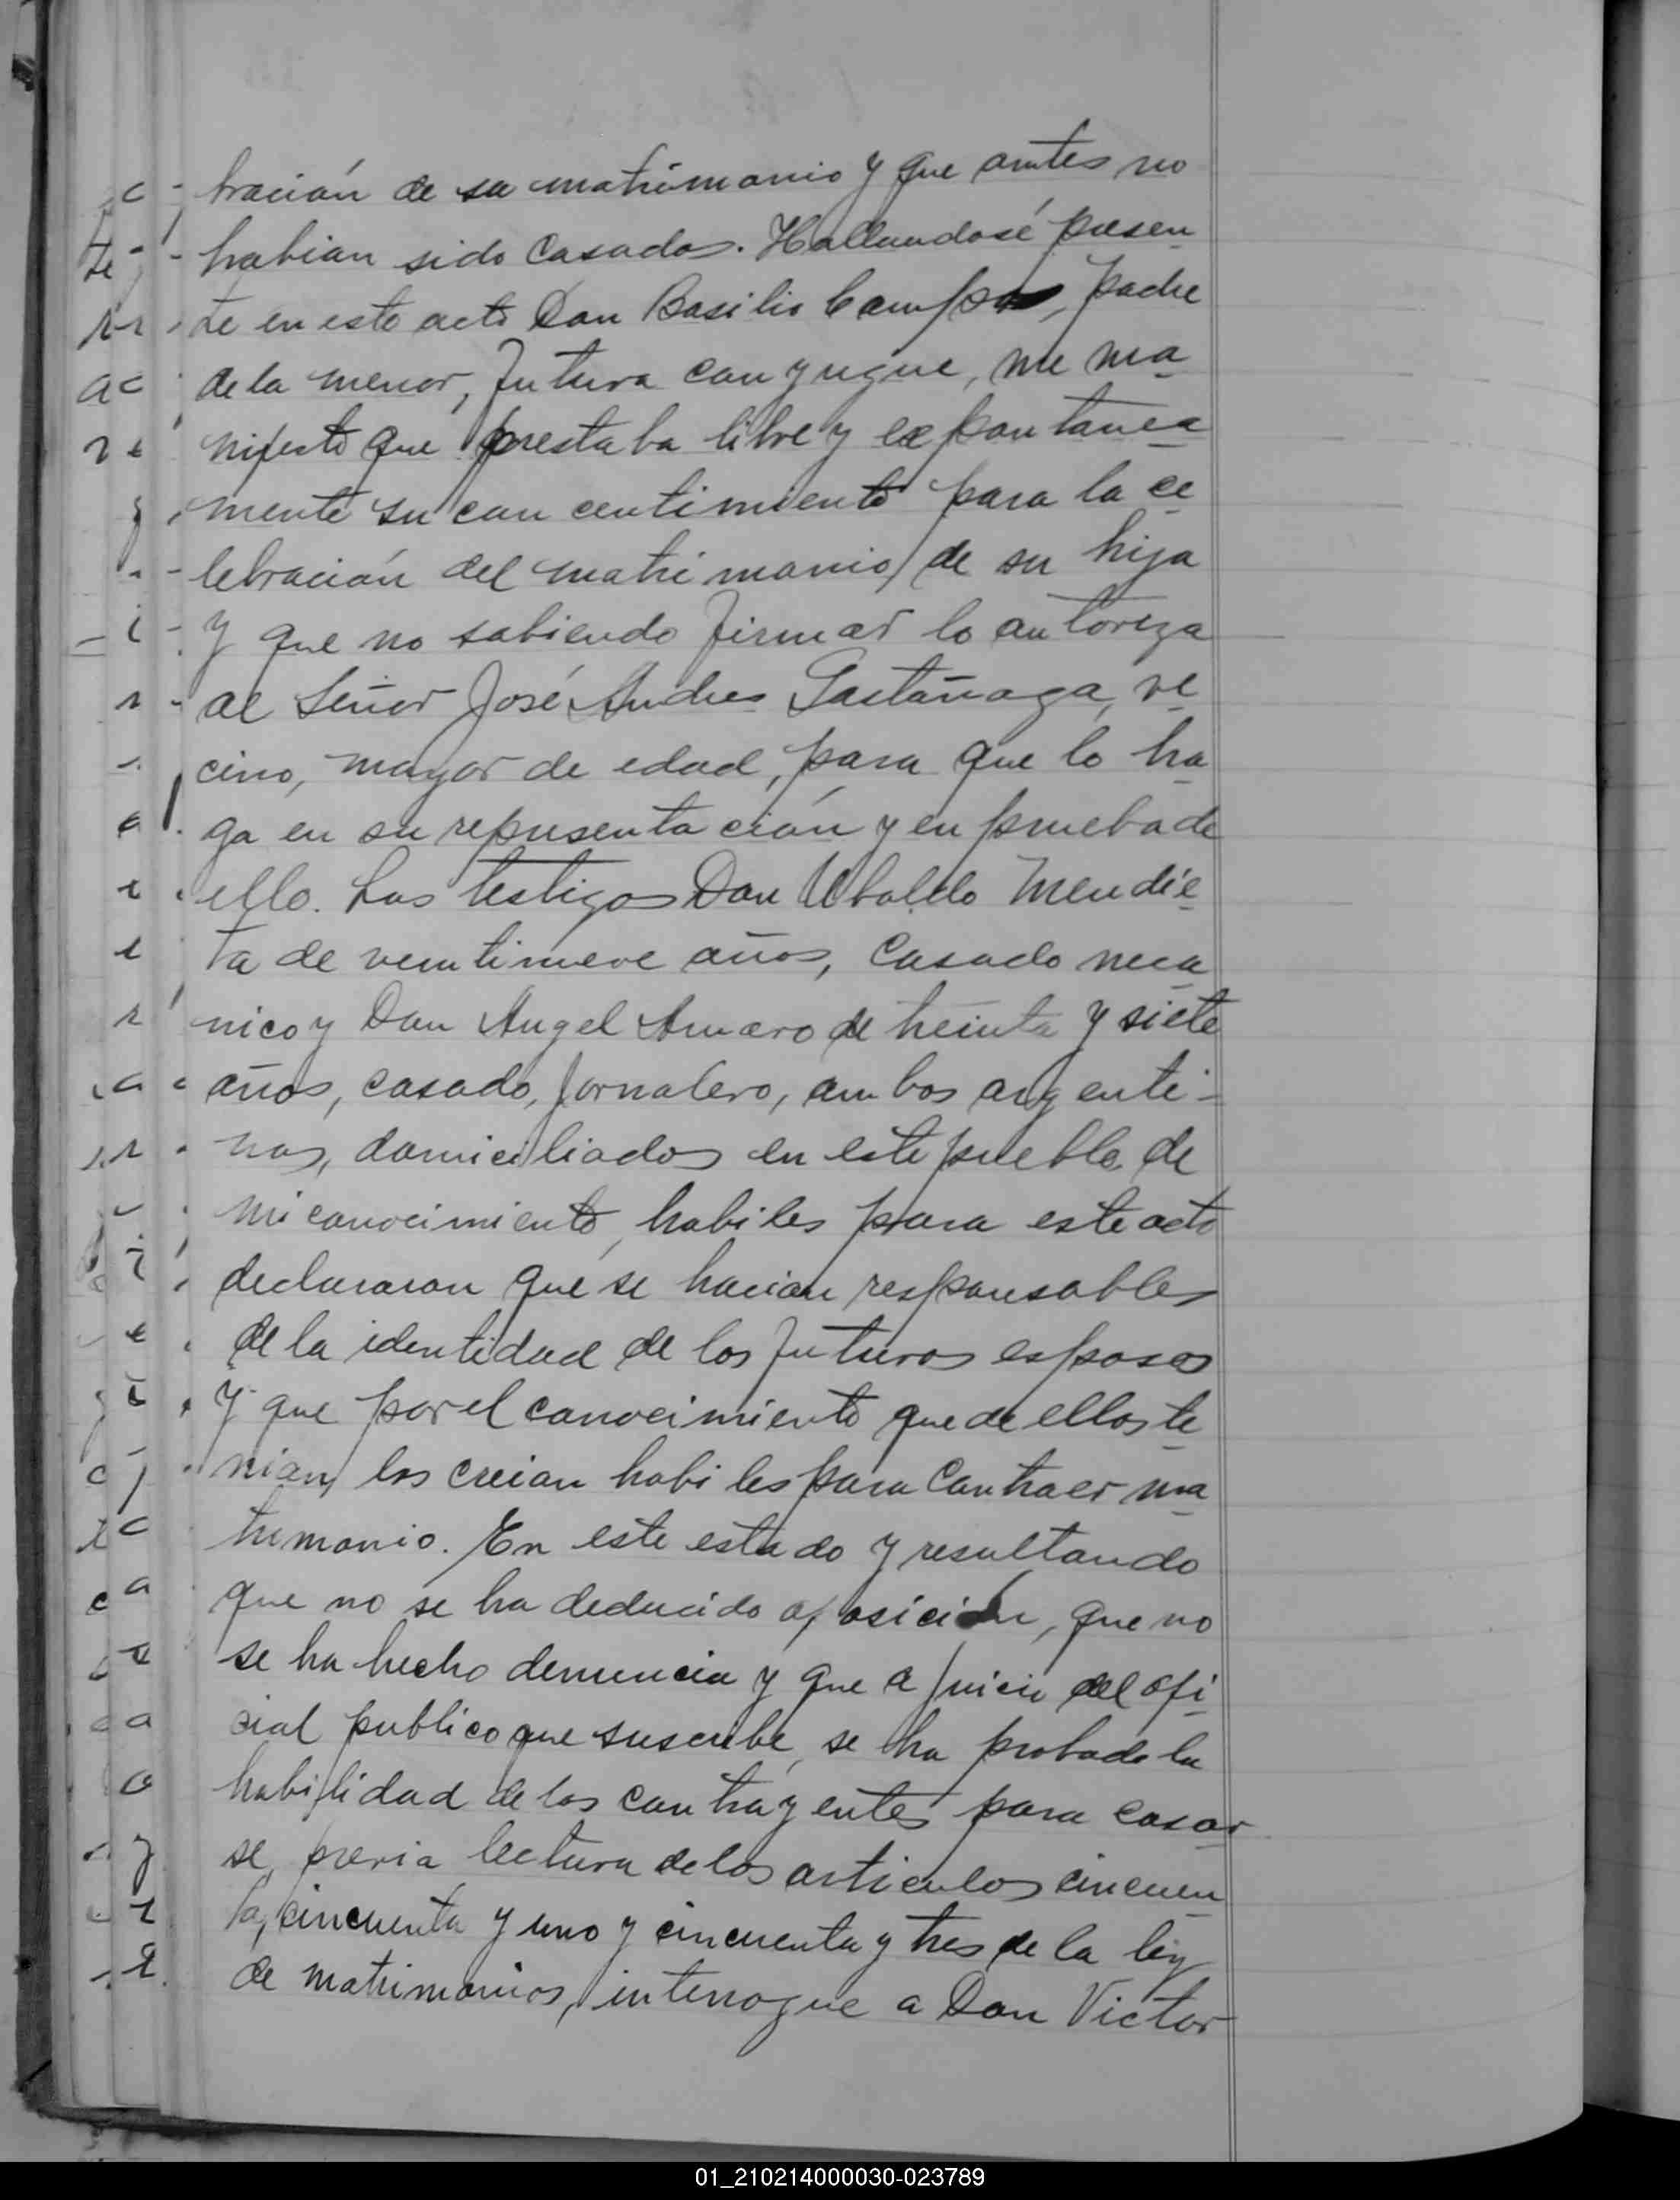 bración de su matrimonio y que antes no
habian sido casados. Hallandosé presen
te en este acto Don Basilio Campos, padre
de la menor, futura conyugue, me ma
nifestó que prestaba libre y expontanea
mente su concentimiento para la ce
lebración del matrimonio de su hija
y que no sabiendo firmar lo autoriza
al Señor José Andres Gastañaga, ve
cino, mayor de edad, para que lo ha
ga en su representación y en prueba de
ello. Los testigos Don Ubaldo Mendie
ta de veintinueve años, casado meca
nico y Don Angel Amaro de treinta y siete
años, casado, jornalero, ambos argenti-
nos, domiciliados en este pueblo de
mi conocimiento, habiles para este acto
declararon que se hacian responsables
de la identidad de los futuros esposos
y que por el conocimiento que de ellos te
nian, los creian habiles para contraer ma
trimonio. En este estado y resultando
que no se ha deducido oposición, que no
se ha hecho denuncia y que a juicio del ofi
cial publico que suscribe, se ha probado la
habilidad de los contrayentes para casar
se, previa lectura de los articulos cincuen
ta, cincuenta y uno y cincuenta y tres de la ley
de matrimonios, interrogue a Don Victor
01_210214000030-023789